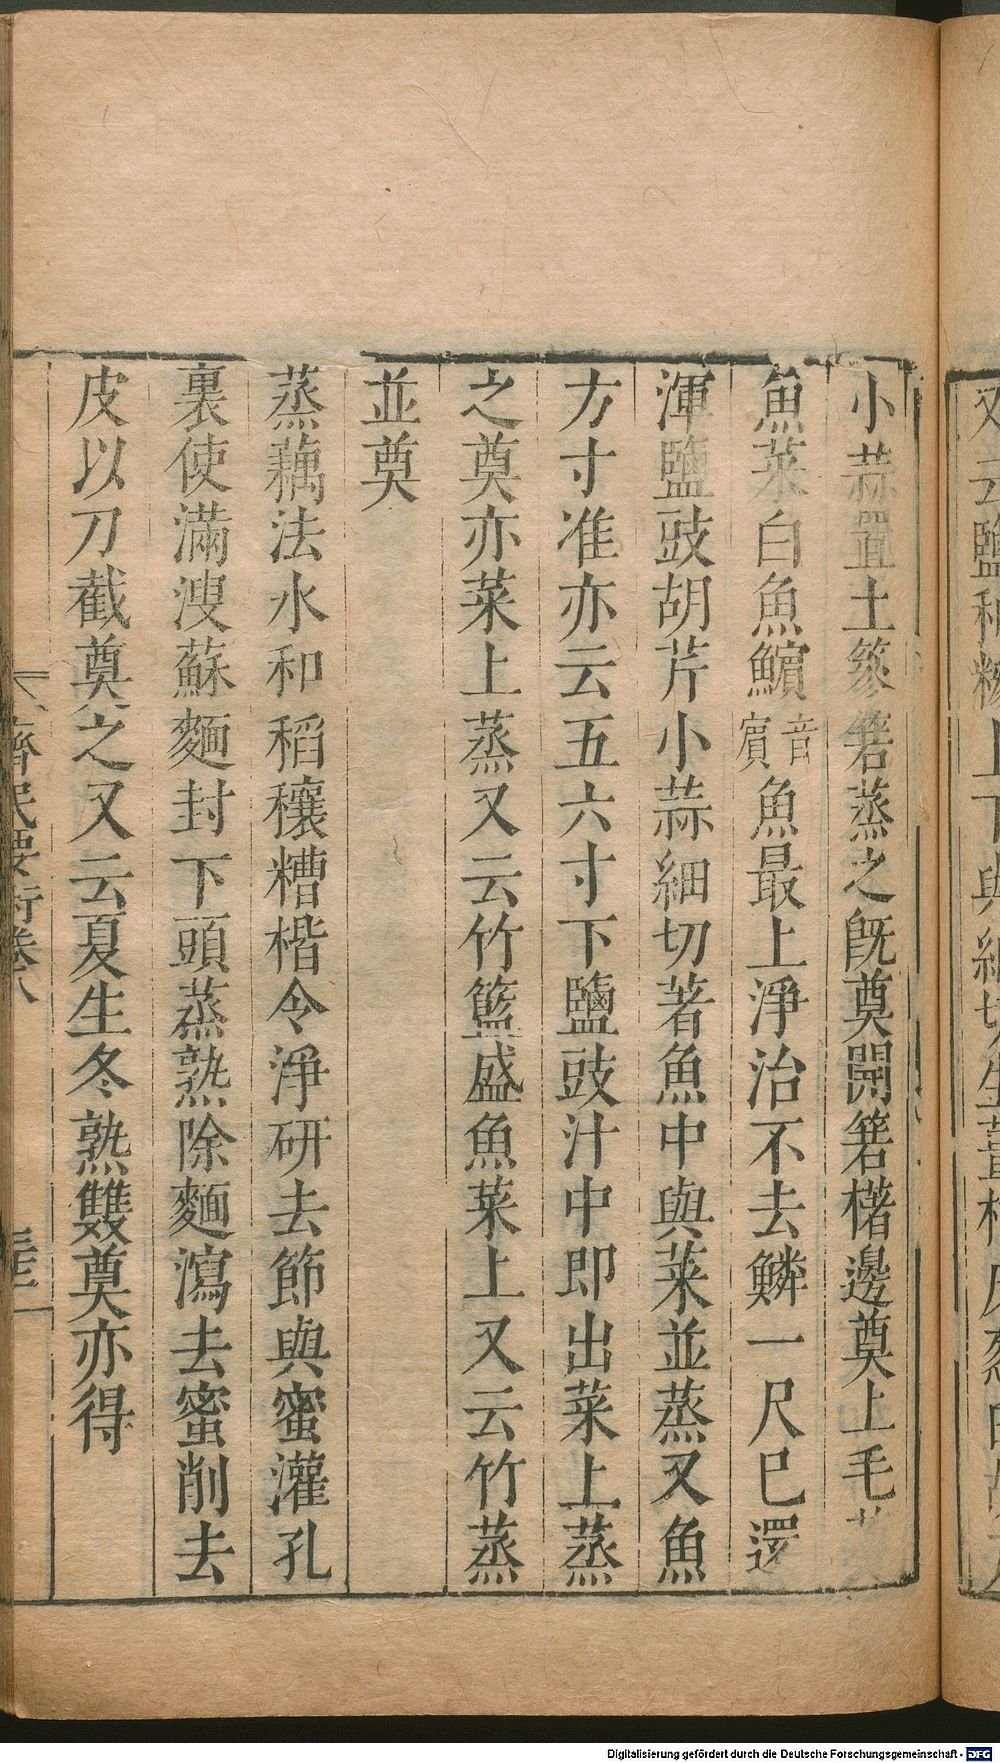 小蒜置土篸箬蒸之旣奠開箬楮邊奠上毛
魚菜白魚鱝音賓魚最上淨治不去鱗一尺巳還
渾鹽豉胡芹小蒜細切著魚中與菜並蒸又魚
方寸准亦云五六寸下鹽豉汁中即出菜上蒸
之奠亦菜上蒸又云竹籃盛魚菜上又云竹蒸
並奠
蒸藕法水和稻穰糟楷令淨研去節與蜜灌孔
裏使滿溲蘇麵封下頭蒸熟除麵瀉去蜜削去
皮以刀截奠之又云夏生冬熟雙奠亦得
齊民要術卷八
Digitalisierung gefördert durch die Deutsche Forschungsgemeinschaft - DFG